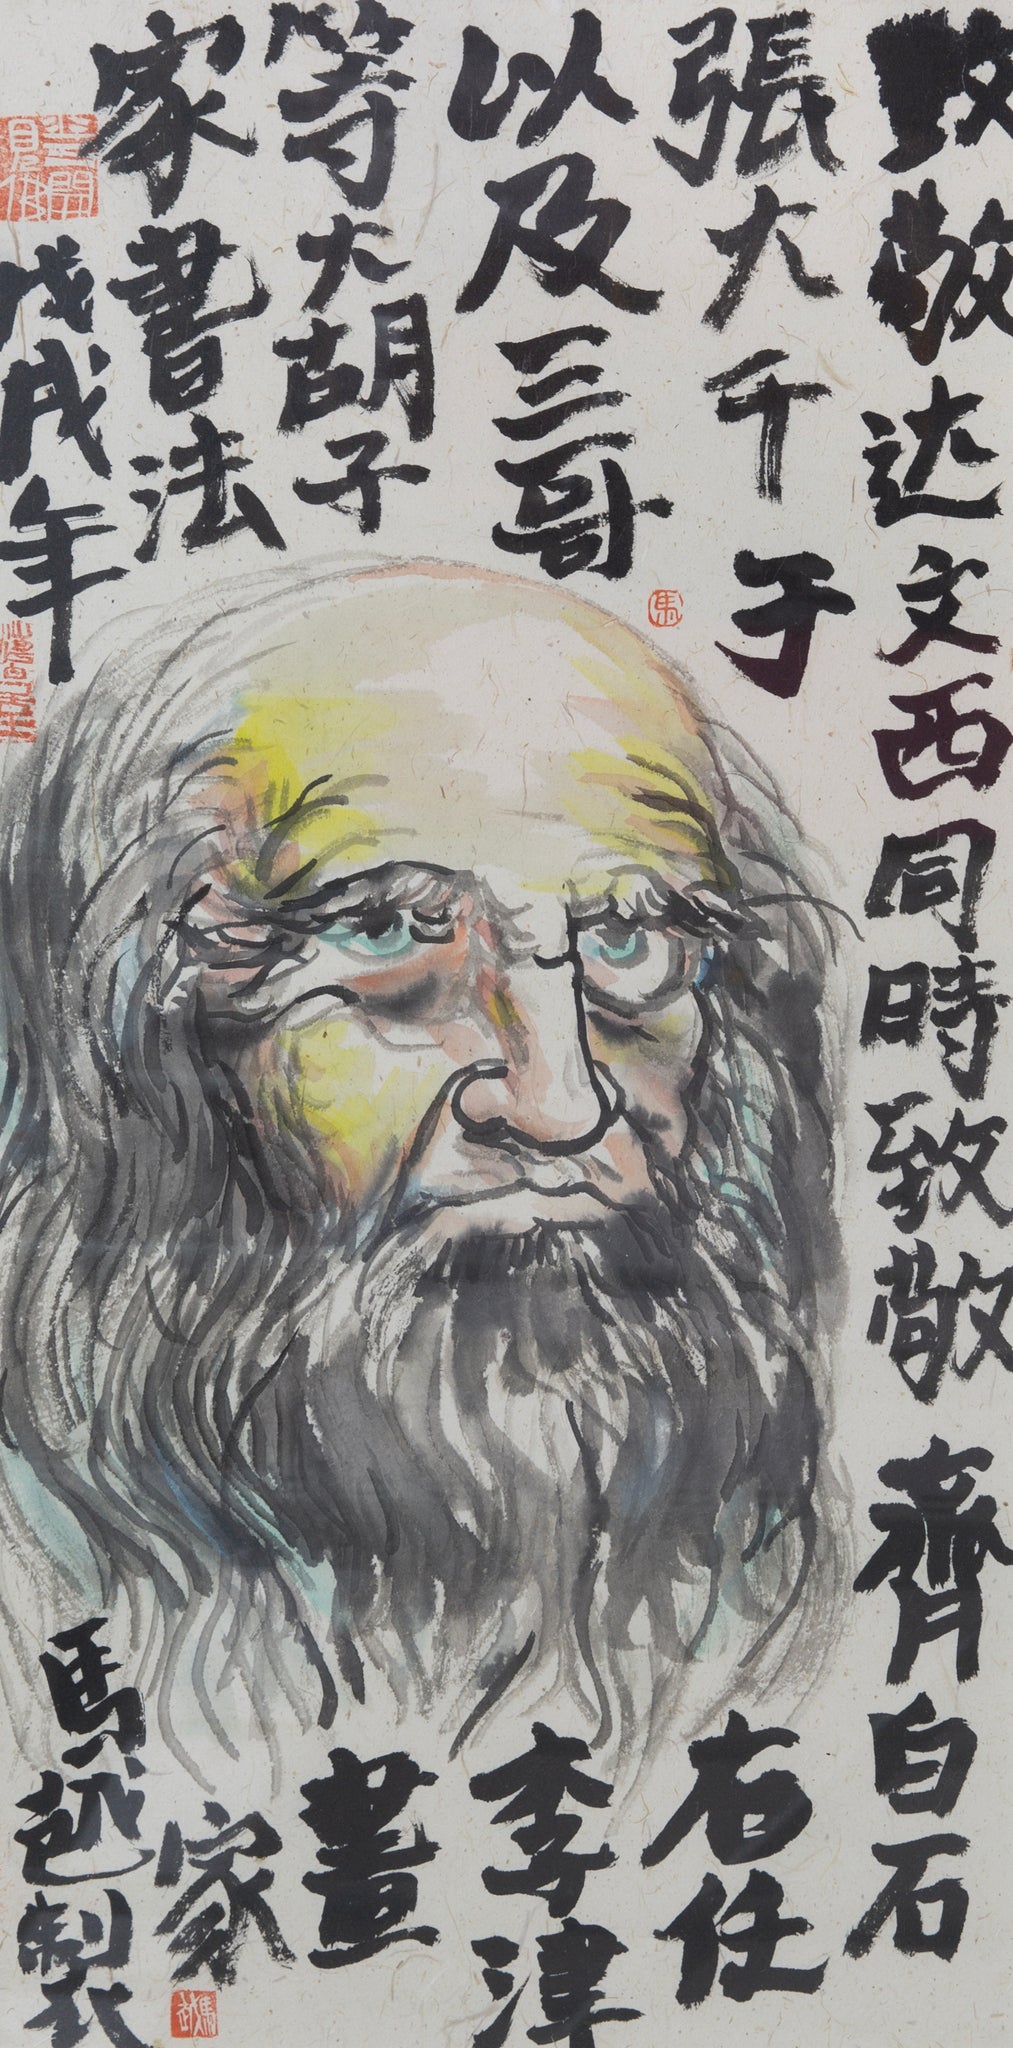 致敬达文西同時致敬齊白石
張大千于右任
以及三哥李津
等大胡子畫
家書法家
戊戌年馬越製
馬
馬越